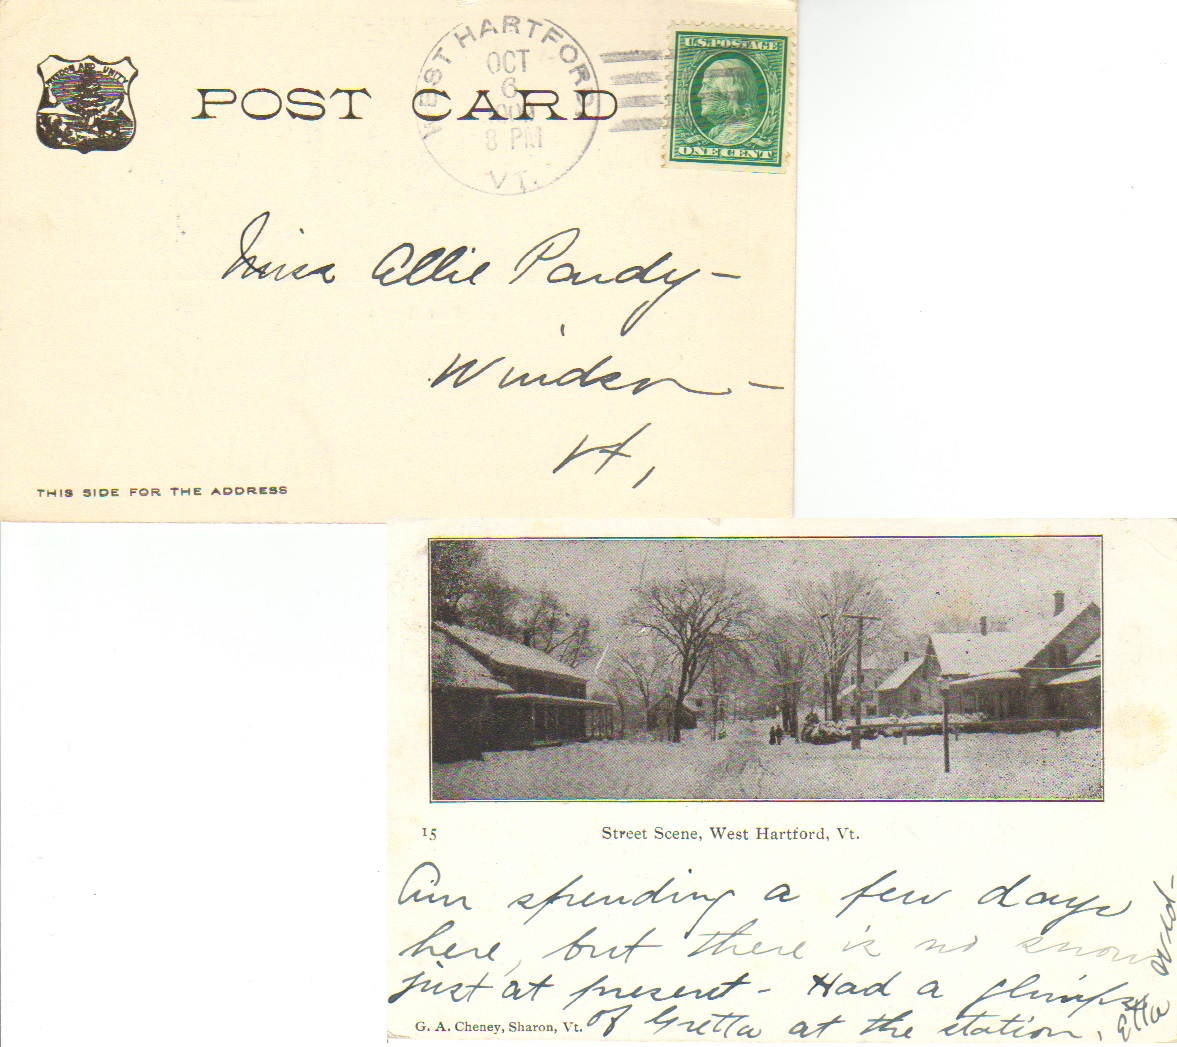 FREEDOM AND UNITY
POST CARD
WEST HARTFORD
OCT
6
8 PM
VT.
U.S. POSTAGE
ONE CENT
Miss Allie Pardy -
Windsor -
Vt,
THIS SIDE FOR THE ADDRESS
15
Street Scene, West Hartford, Vt.
Am spending a few days
here, but there is no snow
just at present - Had a glimpse
of Gretta at the station.
Etta
G. A. Cheney, Sharon, Vt.